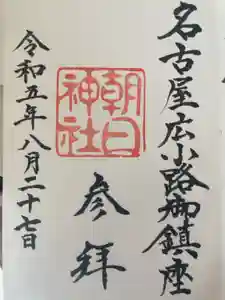 名古屋広小路御鎮座
朝日神社
参拝
令和五年八月二十七日